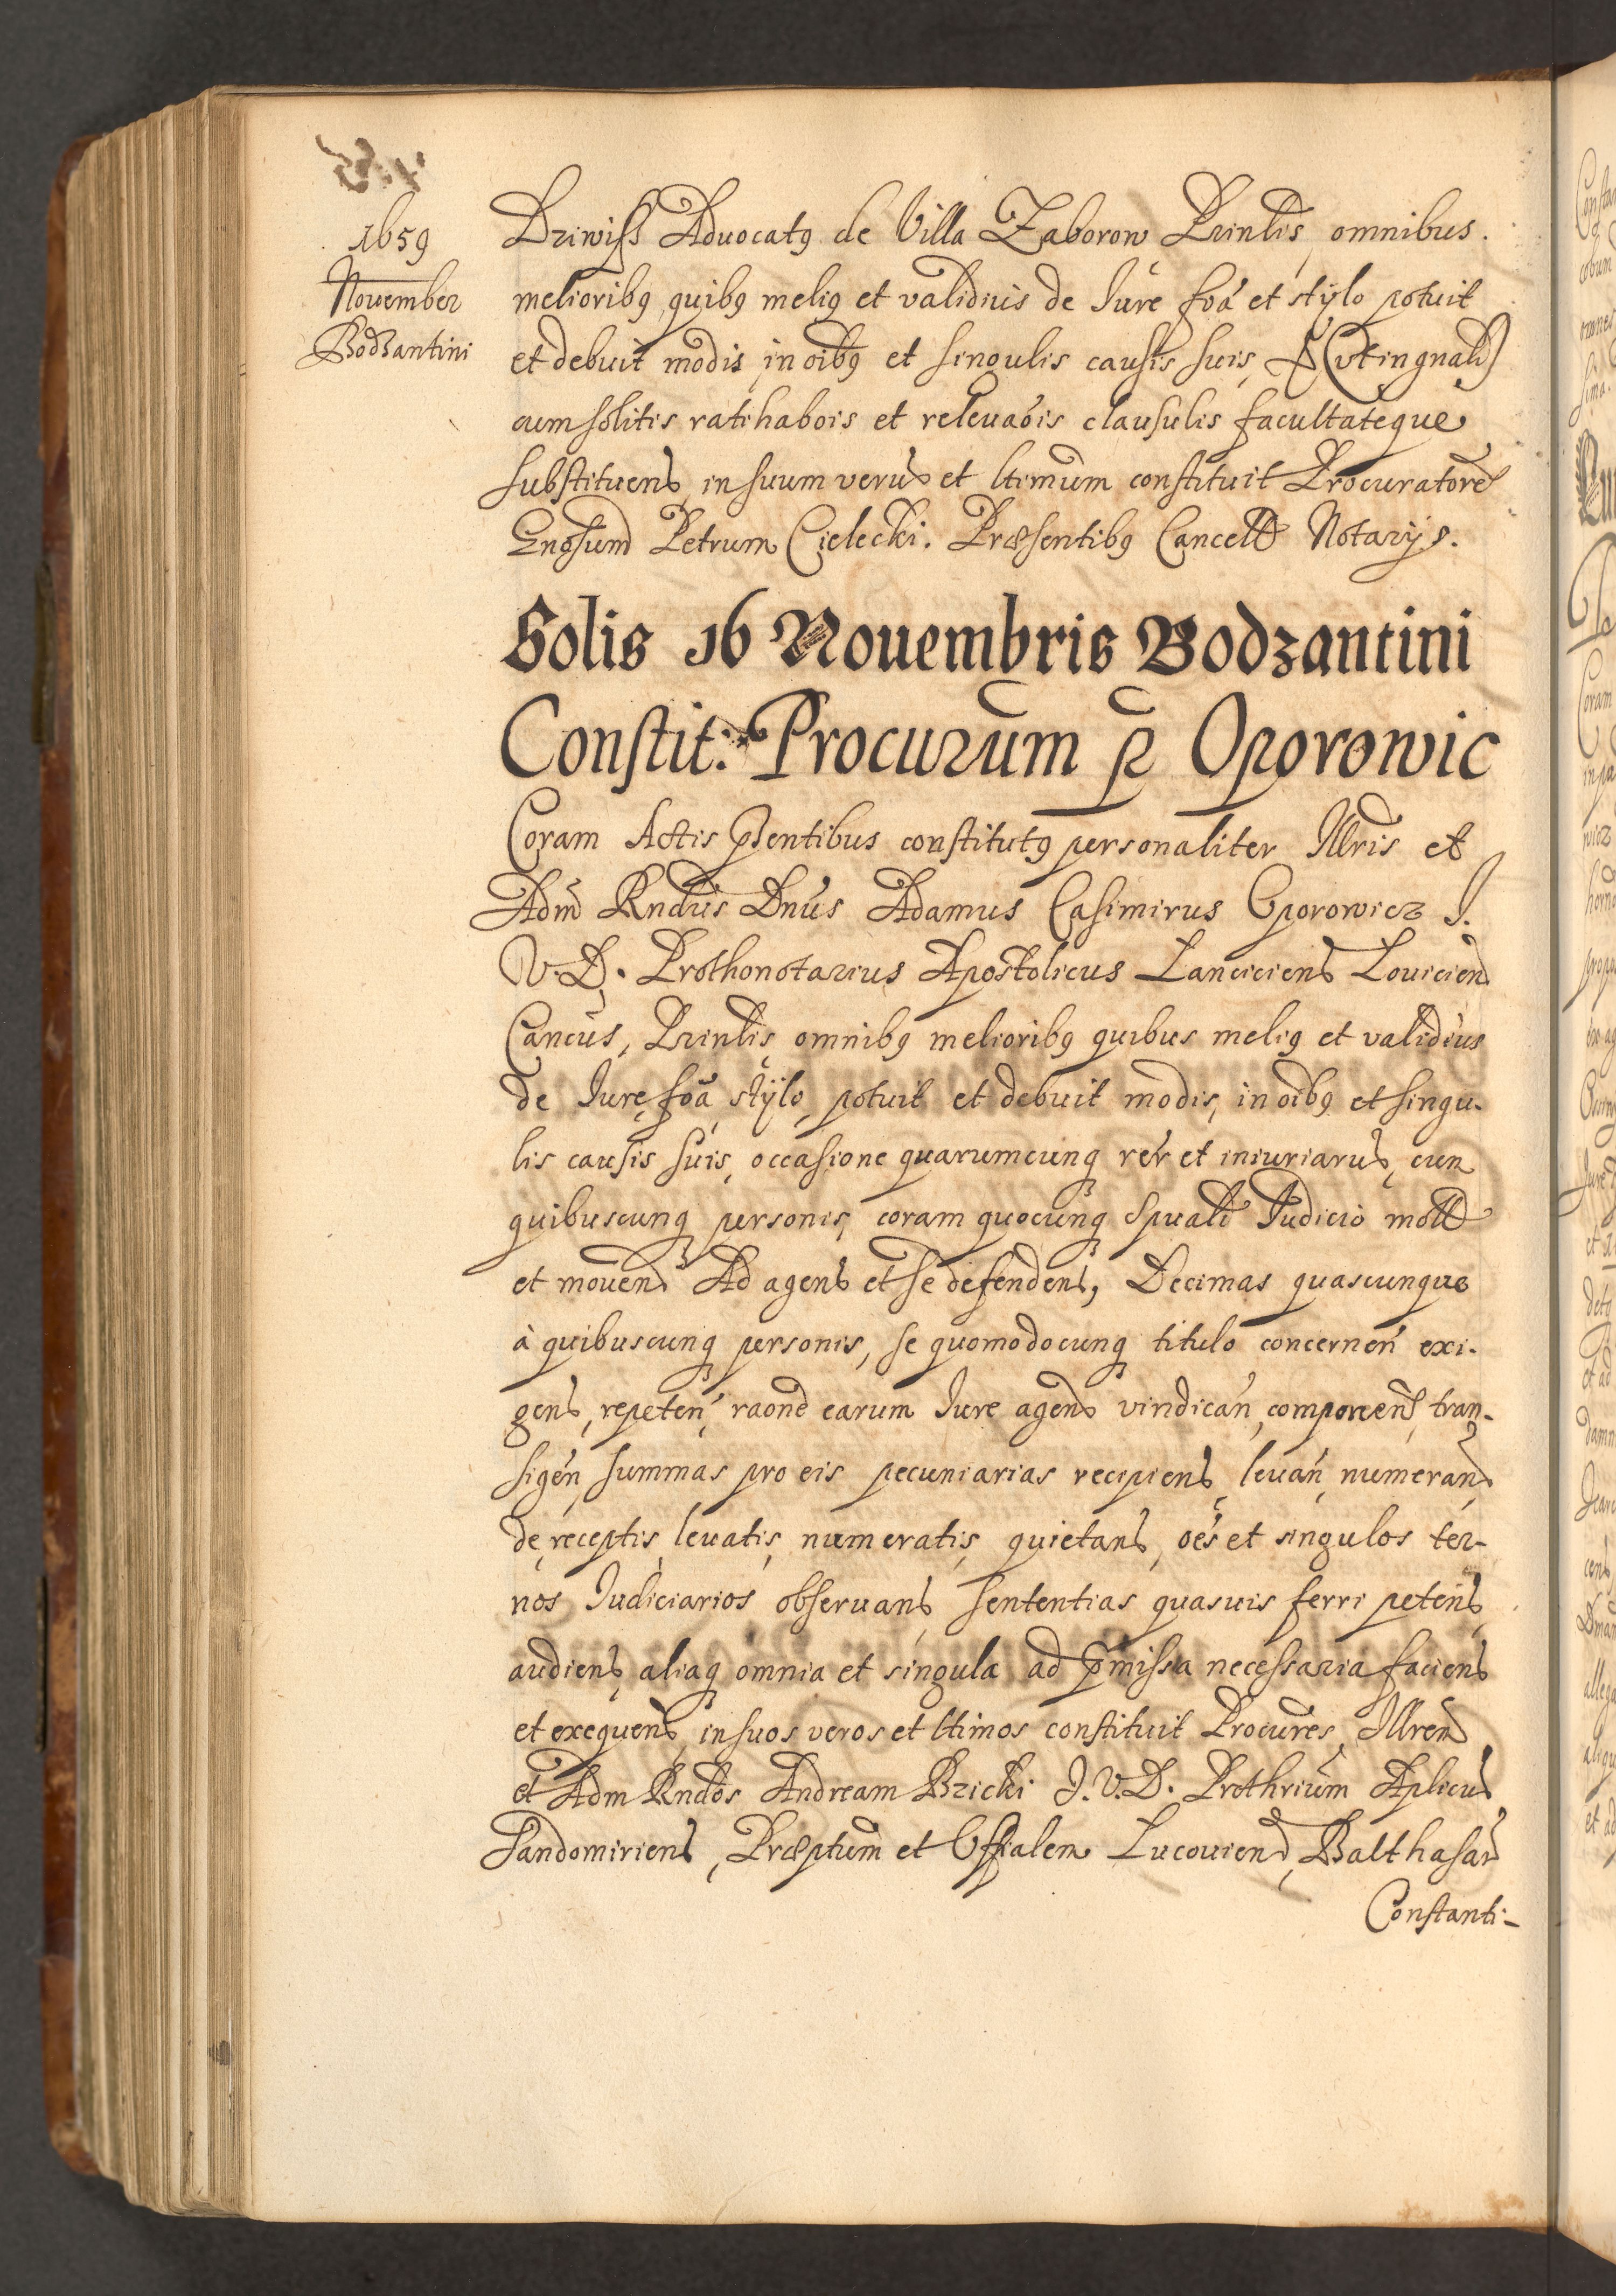 1659
November
Bodzantini
Dziwiss Aduocatq de Villa Zaborow Prinlis omnibus.
melioribq quibq meliq et validius de Iure foa et stylo potuit
et debuit modis in oibq et singulis causis suis & (vt in gnali)
cum solitis ratihabois et releuaois clausulis facultateque
substituend in suum verum et ltimum constituit Procuratorem
Gnosum Petrum Cielecki. Præsentibq Cancell Notarijs.
Solis 16 Nouembris Bodzantini
Constit: Procurum p Oporowic
Coram Actis psentibus constitutq personaliter Illris et
Adm Rndus Dnus Adamus Casimirus Oporowicz I.
V. D. Prothonotarius Apostolicus Lanciciens Louicien
Cancus, Prinlis omnibq melioribq quibus meliq et validius
de Iure, foa stylo, potuit et debuit modis, in oibq et singu-
lis causis suis, occasione quarumcunq rer et iniuriarum, cum
quibuscunq personis, coram quocunq Spuali Iudicio mott
et mouend Ad agend et se defendend, Decimas quascunque
à quibuscunq personis, se quomodocunq titulo concernen exi-
gend, repeten, raone earum Iure agend vindican, componend, tran-
sigen, summas pro eis pecuniarias recipiend, leuan, numerand
de receptis, leuatis, numeratis, quietand, oes et singulos ter-
nos Iudiciarios obseruand, sententias quasuis ferri petend,
audiend, aliaq omnia et singula ad pmissa necessaria faciend
et exequend, in suos veros et ltimos constituit Procures, Illrem
et Adm Rndos Andream Bzicki I. V. D. Prothrium Aplicum
Sandomiriens, Præptum et Offialem Lucouien, Balthasar
Constanti-